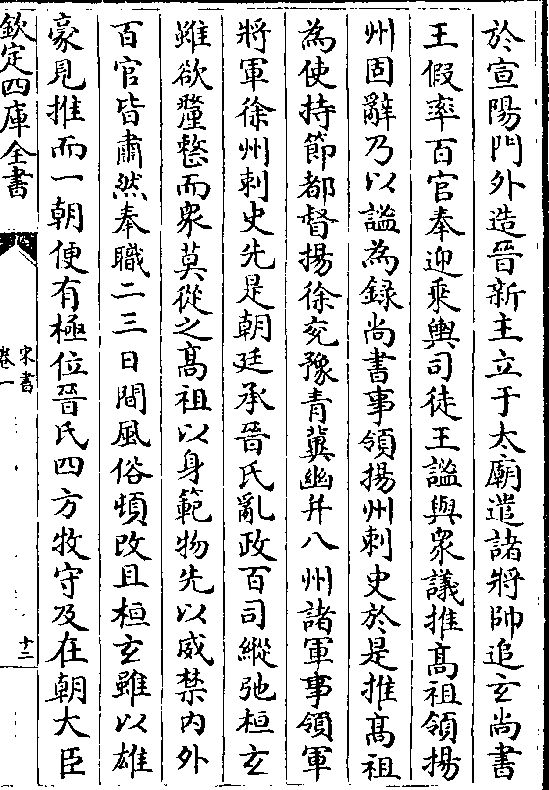 於宣陽門外造晉新主立于太廟遣諸將帥追玄尚書
王假率百官奉迎乘輿司徒王謐與衆議推髙祖領揚
州固辭乃以謐為録尚書事領揚州刺史於是推髙祖
為使持節都督揚徐兖豫青冀幽并八州諸軍事領軍
將軍徐州刺史先是朝廷承晉氏亂政百司縱弛桓玄
雖欲釐整而衆莫從之髙祖以身範物先以威禁内外
百官皆肅然奉職二三日間風俗頓改且桓玄雖以雄
豪見推而一朝便有極位晉氏四方牧守及在朝大臣
欽定四庫全書
宋書
卷一
十二